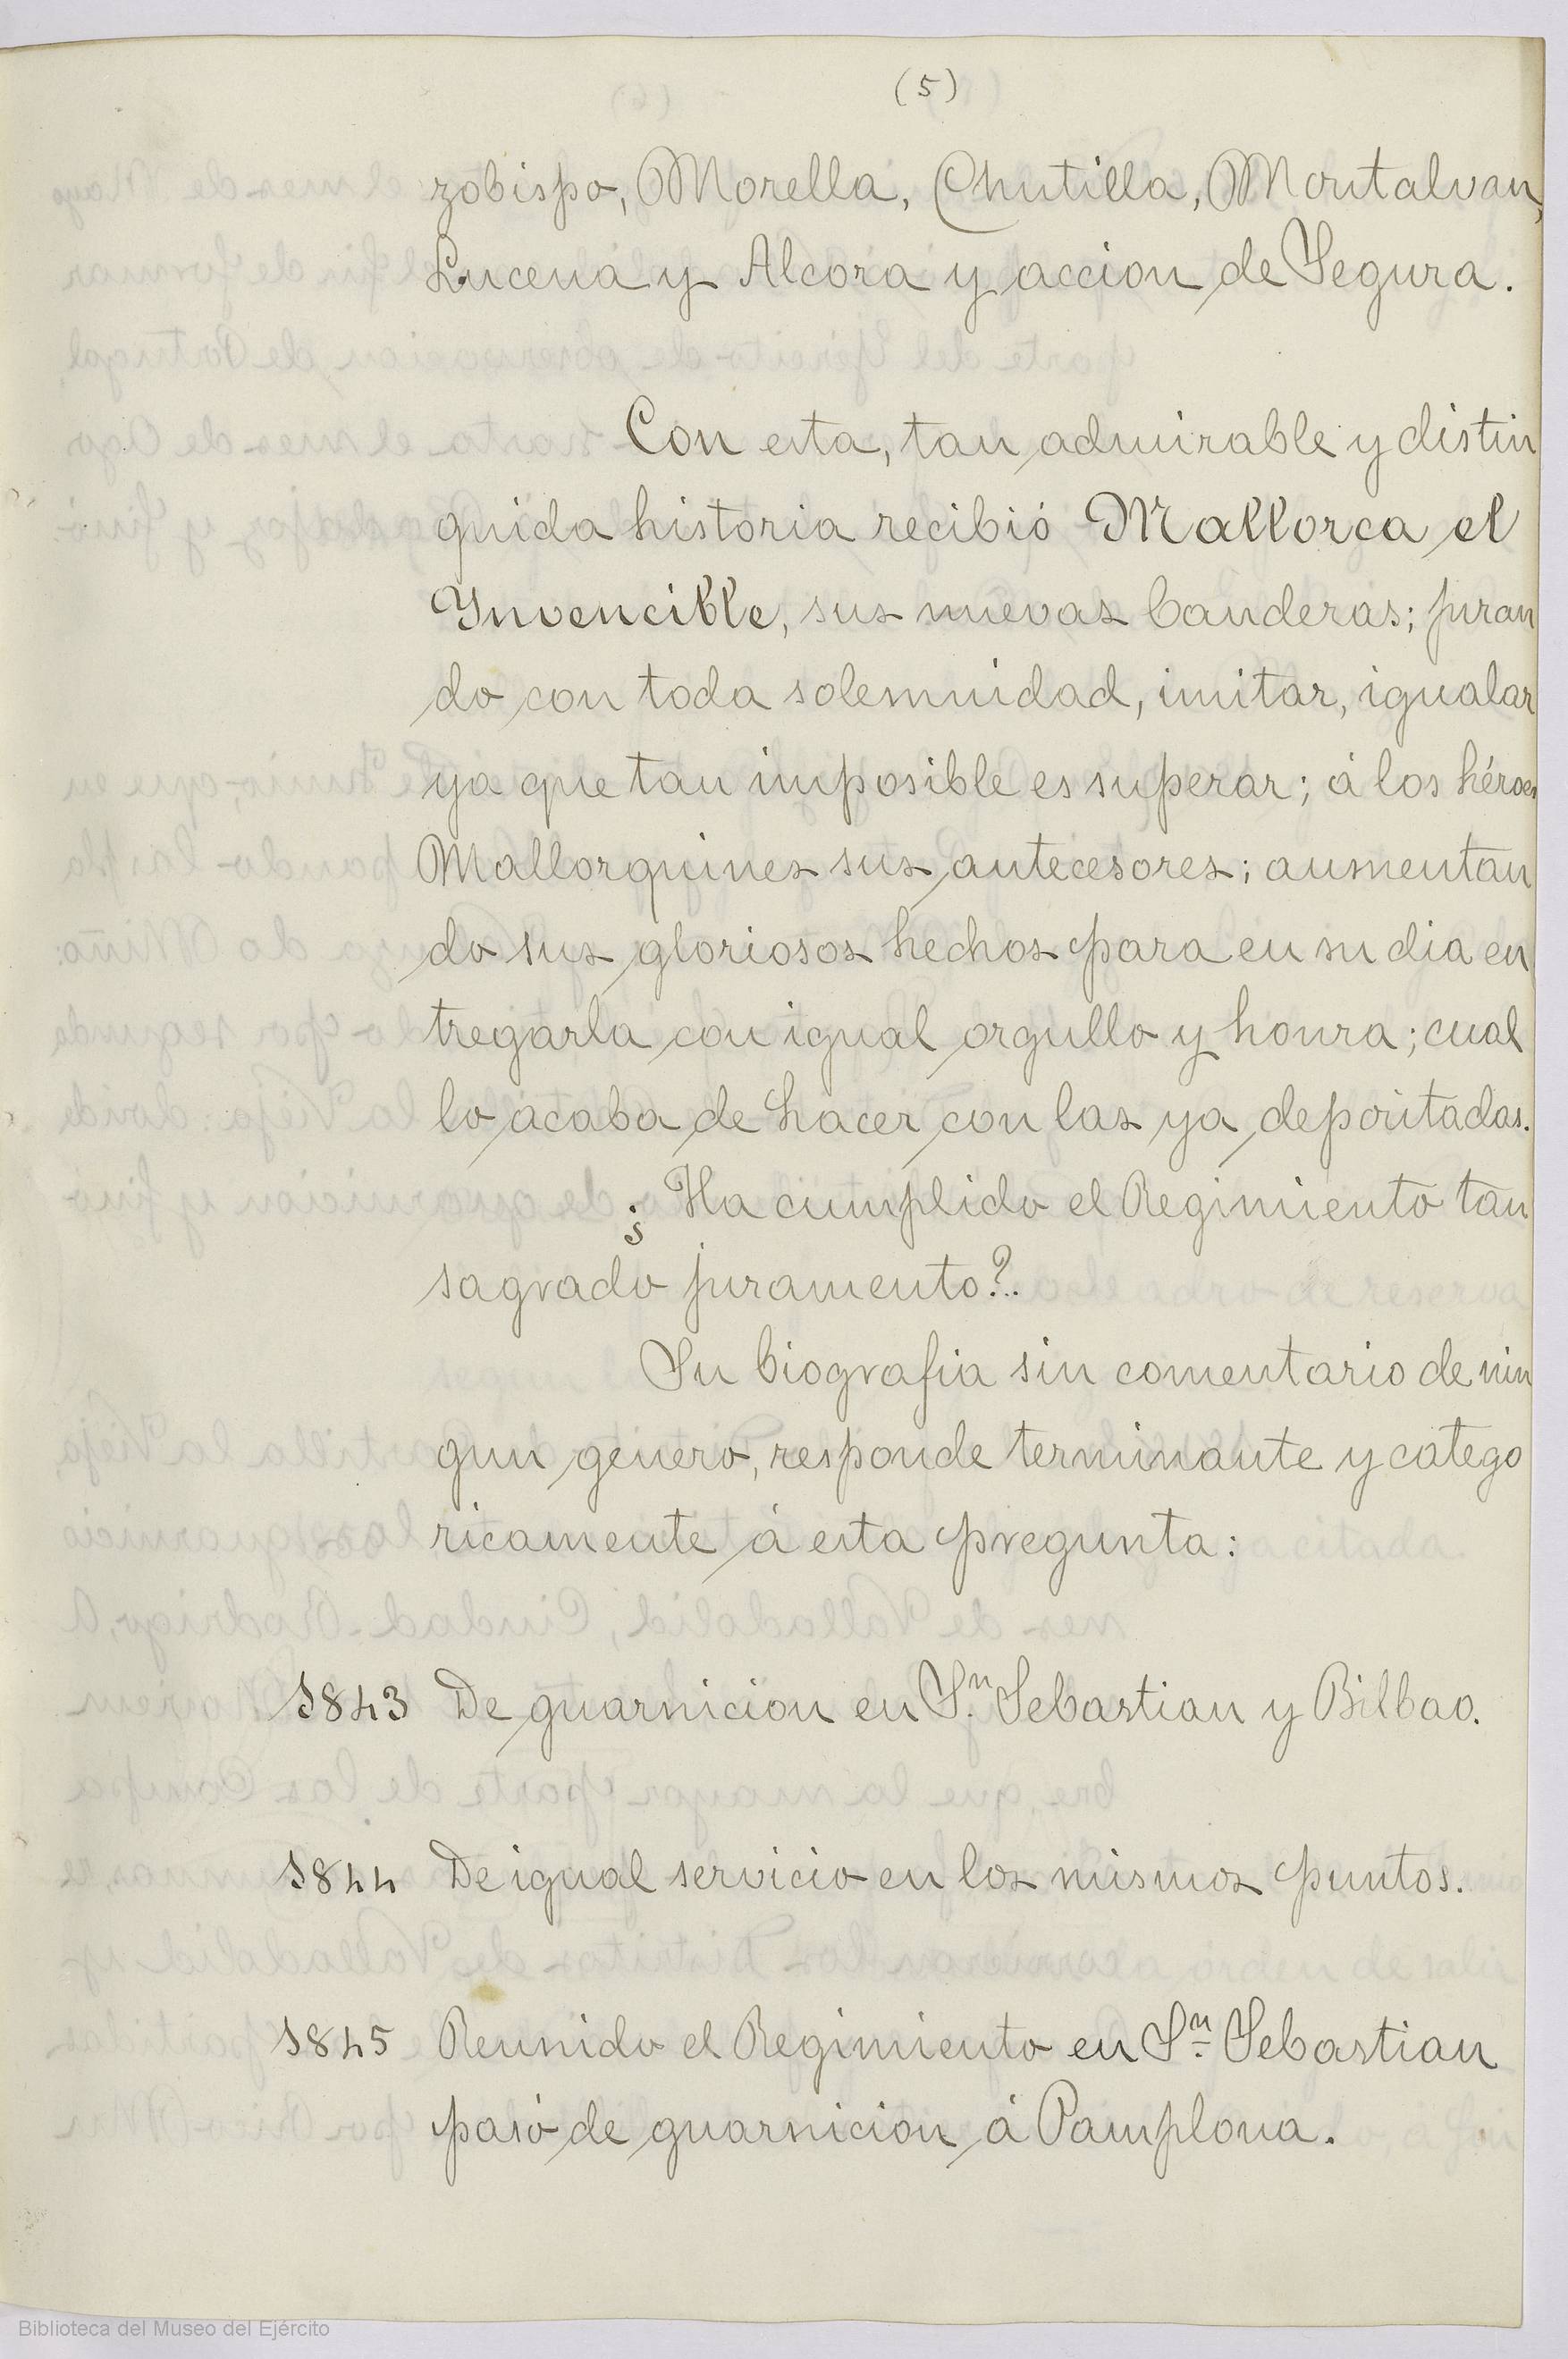 (5)
zobispo, Morella, Chutilla, Montalvan,
Lucena y Alcora y accion de Segura.
Con esta, tan admirable y distin
guida historia recibió Mallorca el
Ynvencible, sus nuevas banderas; juran
do con toda solemnidad, imitar, igualar
ya que tan imposible es superar; á los héroes
Mallorquines sus antecesores; aumentan
do sus gloriosos hechos para en su dia en
tregarla con igual orgullo y honra; cual
lo acaba de hacer con las ya depositadas.
¿Ha cumplido el Regimiento tan
sagrado juramento?..
Su biografia sin comentario de nin
gun genero, responde terminante y catego
ricamente á esta pregunta:
1843 De guarnicion en Sn. Sebastian y Bilbao.
1844 De igual servicio en los mismos puntos.
1845 Reunido el Regimiento en Sn. Sebastian
pasó de guarnicion á Pamplona.
Biblioteca del Museo del Ejército